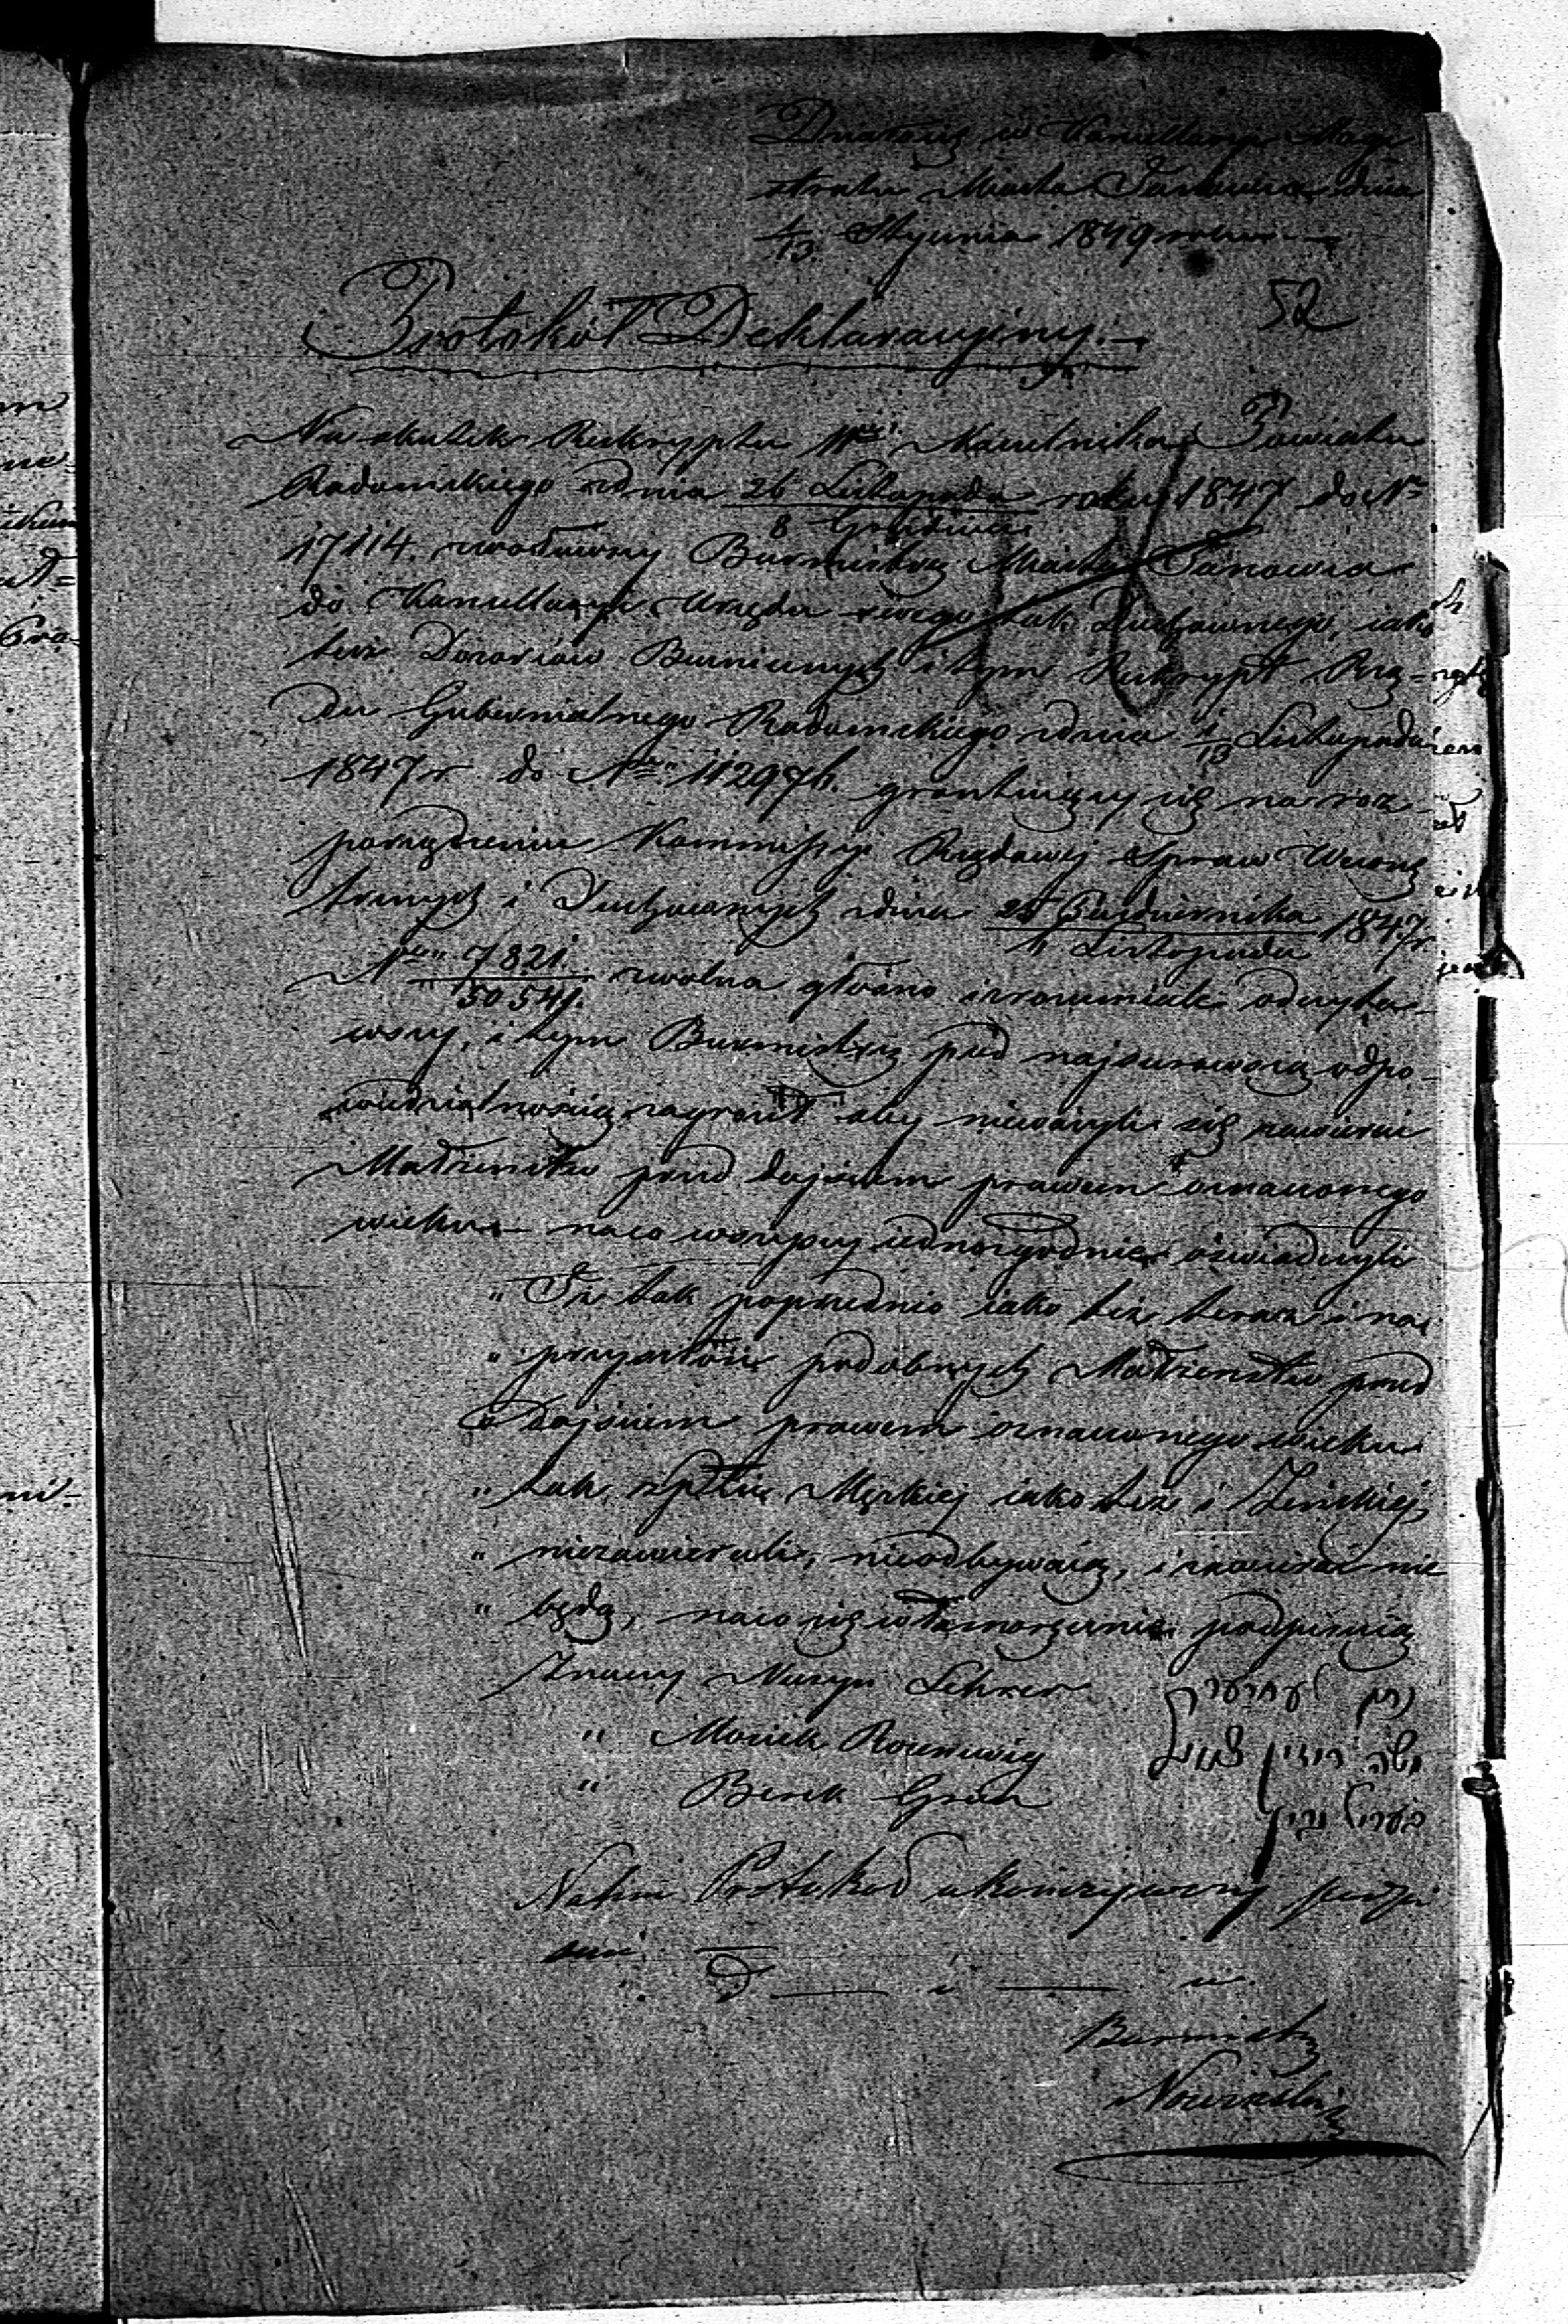 Działo się w Kancellaryi Magi
stratu Miasta Janowca dnia
1/13 Stycznia 1849 roku
52
Protokół Deklaracyjny.
Na skutek Reskryptu Naczelnika Powiatu
Radomskiego z dnia 26 Listopada roku 1847 do Nr
8 Grudnia
17114. zwoławszy Burmistrz Miasta Janowca
do Kancellaryi Urzędu swego tak Duchownego, iako
też Dozorców Bużnicznych i tym Reskrypt Rzą=
du Gubernialnego Radomskiego z dnia 1/13 Listopada
1847 r do Nru 112976. gruntuiący się na roz
porządzeniu Kommissyi Rządowej Spraw Wewnę
trznych i Duchownych z dnia 25 Października 1847 r
Listopada
Nru 7821
50541. zwolna głośno i zrozumiale odczyta
wszy, i tym Burmistrz pod najsurowszą odpo-
wiedzialnością zagroził aby nieważyli się zawierać
Małżeństw przed dojściem prawem oznaczonego
wieku - na co wszyscy iednozgodnie oświadczyli
" Iż tak poprzednio iako też teraz i na
" przyszłość podobnych Małżeństw przed
dojściem prawem oznaczonego wieku
" tak z płci Męzkiej iako też i Żeńskiej
" niezawierali, nieodbywaią, i zawierać nie
" będą, na co się własnoręcznie podpisuią
Znaczy Nusyn Lehrer נתן לעהרער
" Moszek Rozencwig משה רוזין צווייג
" Berek Grin בעריל גרין
Na tym Protokół ukończywszy podpi
sany
D i u
Burmistrz